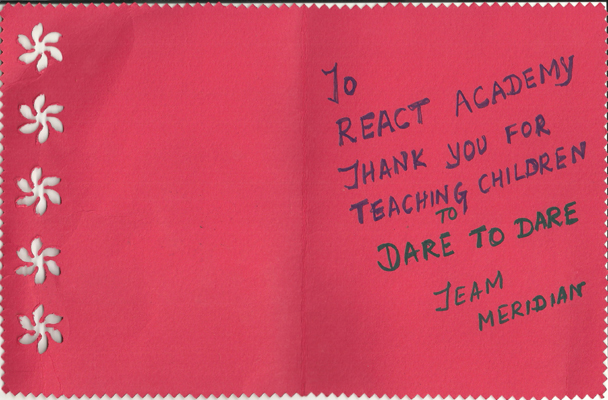 To
REACT ACADEMY
THANK YOU FOR
TEACHING CHILDREN
TO
DARE TO DARE
TEAM
MERIDIAN